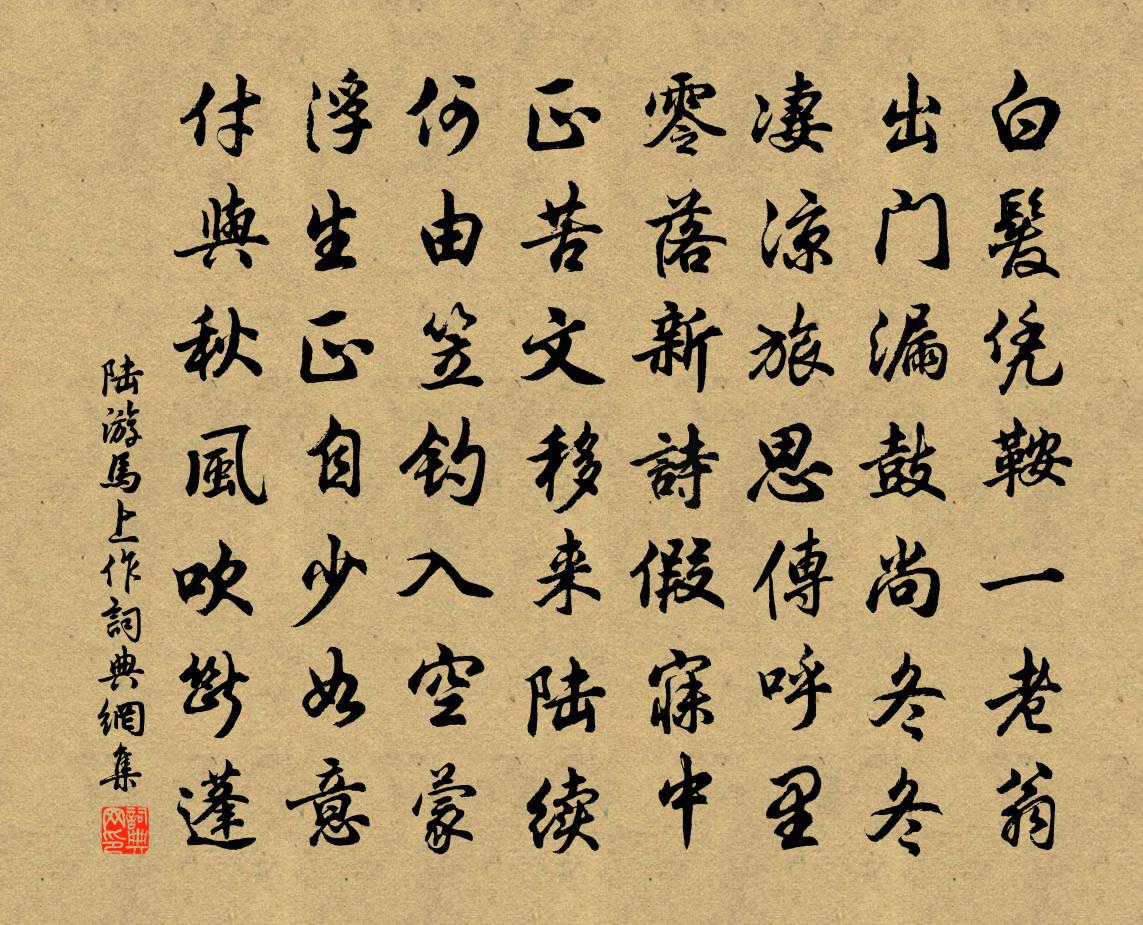 白髮凭鞍一老翁
出门漏鼓尚冬冬
凄凉旅思傳呼里
零落新詩假寐中
正苦文移来陆续
何由笠钓入空蒙
浮生正自少如意
付與秋風吹斷蓬
陆游馬上作詞典網集
詞典网印